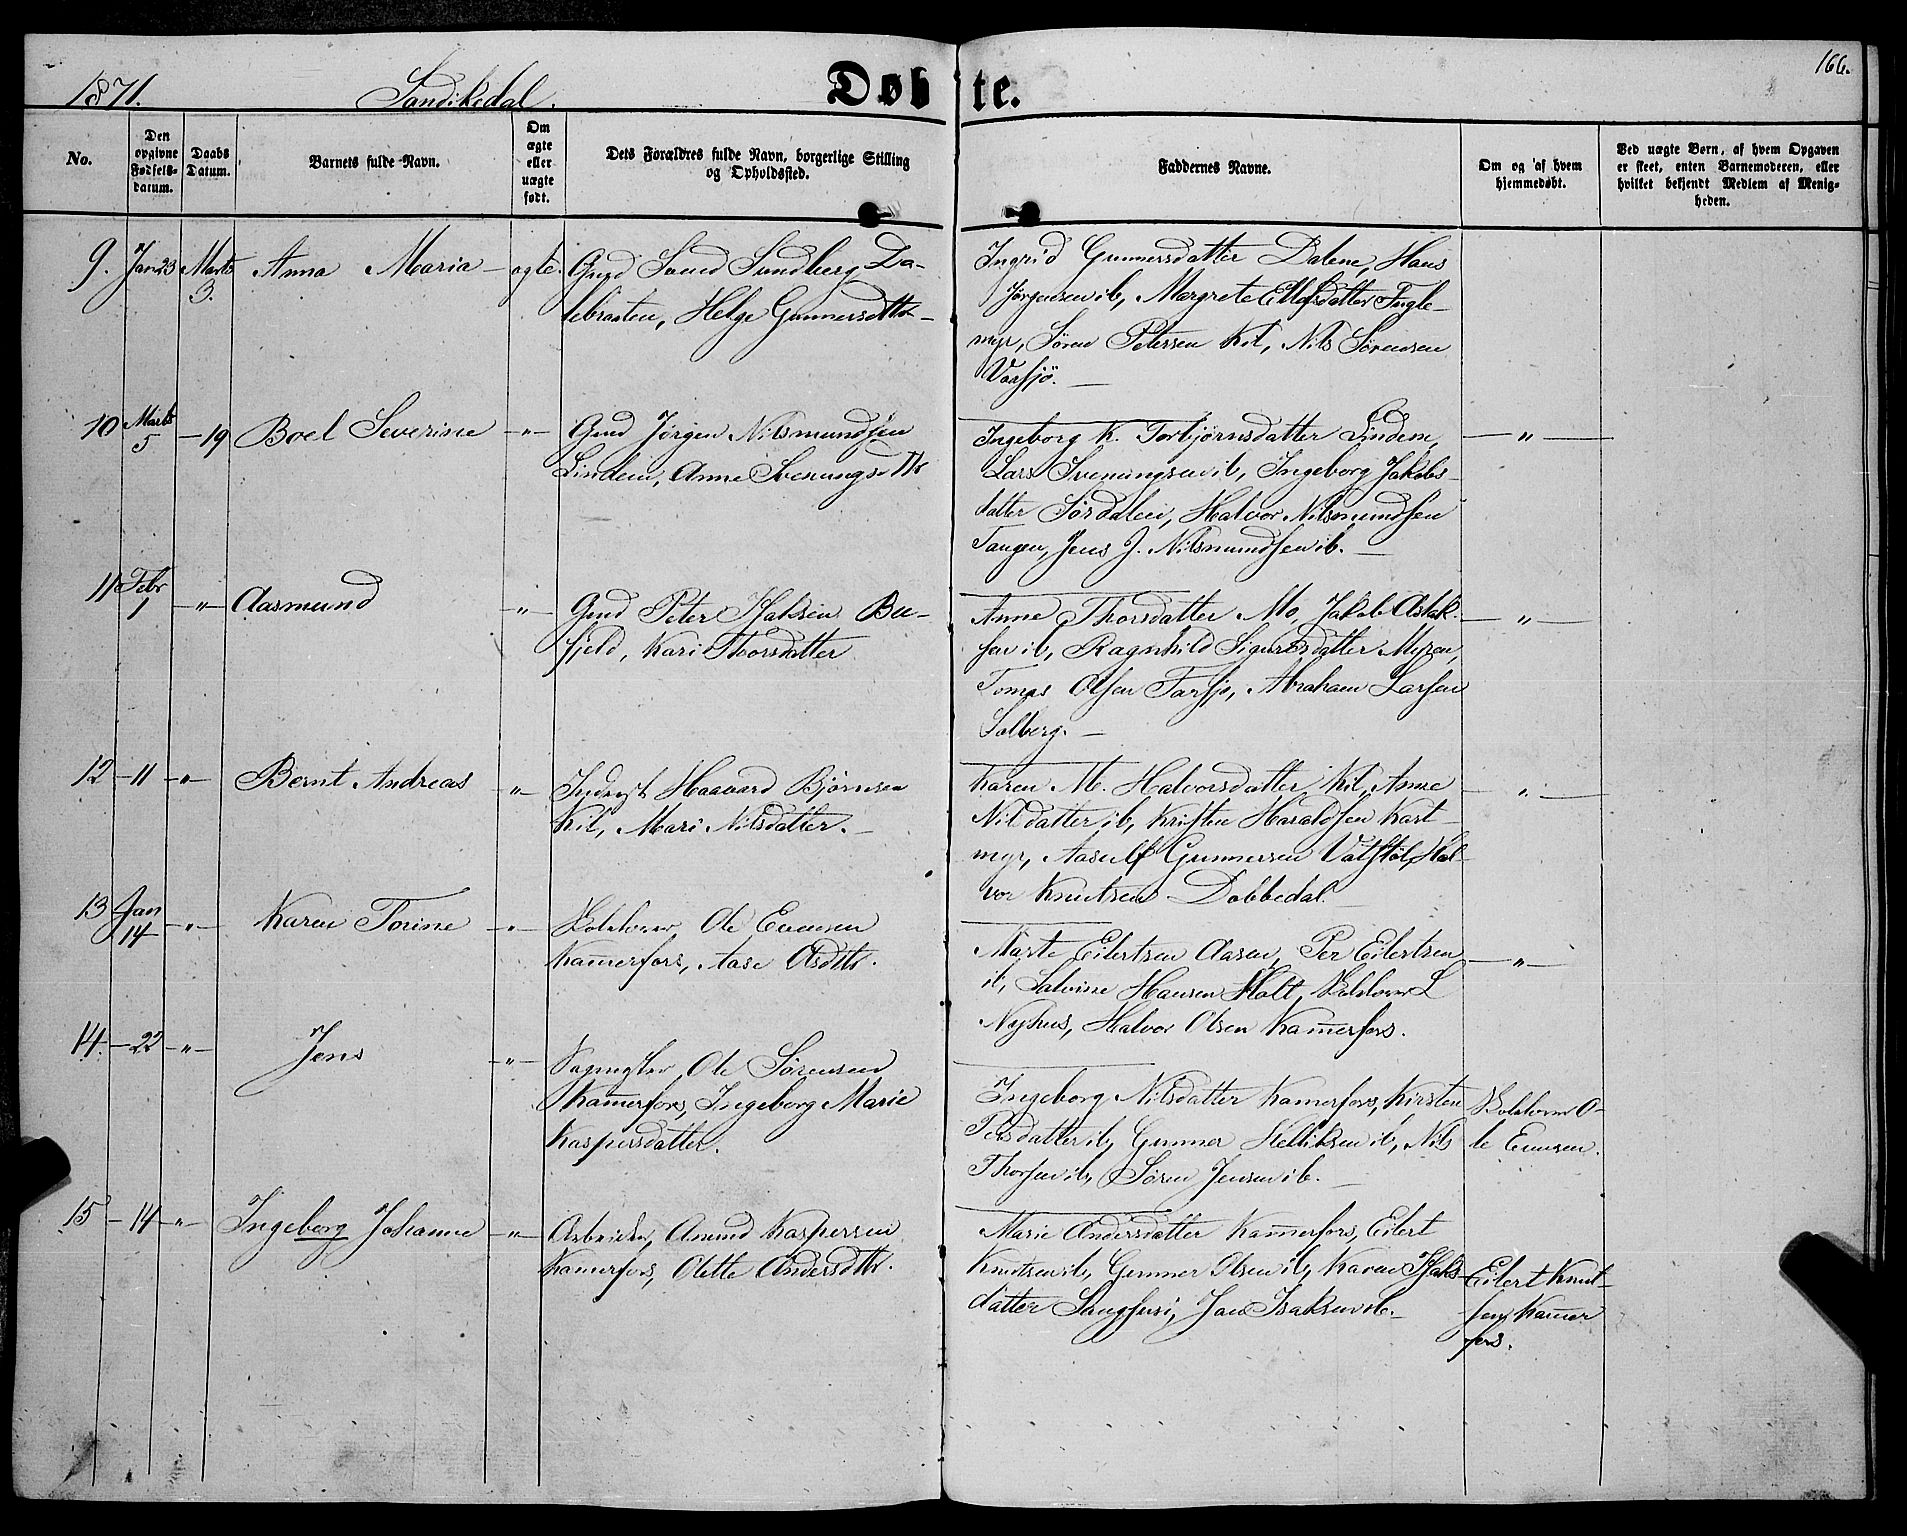 166.
1871. Sandikedal. Døbte.
No.
Den opgivne Fødsels-datum.
Daabs Datum.
Barnets fulde Navn.
Om ægte eller uægte født.
Dets Forældres fulde Navn, borgerlige Stilling og Opholdssted.
Faddernes Navne.
Om og af hvem hjemmedøbt.
Ved uægte Børn, af hvem Opgaven er skeet, enten Barnemoderen, eller hvilket bekjendt Medlem af Menigheden.
9. Jan 23 Marts 3. Anna Maria — ægte. Gmd Sund Sundberg Da-
lebraaten, Helge Gunnersdttr —
Ingrid Gunnersdatter Dalene, Hans
Jørgensen ib, Margrete Ellefsdatter Fugle-
myr, Søren Petersen Kil, Nils Sørensen
Vaasjø. —
10 Marts 5 — 19 Boel Severine — " — Gmd Jørgen Nilsmundsen
Lindem, Anne Svenungsdtr
Ingeborg K. Torbjørnsdatter Lindem, — " —
Lars Svenungsen ib, Ingeborg Jakobs-
datter Sørdalen, Halvor Nilsmundsen
Tangen, Jens J. Nilsmundsen ib. —
11 Febr 1 — " — Aasmund — " — Gmd Peter Isaksen Bu-
fjeld, Kari Thorsdatter
Anne Thorsdatter Mo, Jakob Aslak- — " —
sen ib, Ragnhild Sigurdsdatter Myren,
Tomas Olsen Farsjø, Abraham Larsen
Solberg. —
12 — 11 — " — Bernt Andreas — " — Inderst Haavard Bjørnsen
Kil, Mari Nilsdatter. —
Karen M. Halvorsdatter Kil, Anne — " —
Nilsdatter ib, Kristen Haraldsen Kart-
myr, Aasulf Gunnersen Vatstøl, Hal-
vor Knutsen Dobbedal.
13 Jan 14 — " — Karen Torine — " — Skolelærer Ole Evensen
Kamerfors, Aase Olsdttr.
Marte Eilertsen Aasen, Per Eilertsen — " —
ib, Salvine Hansen Holt, Skolelærer L
Nyhus, Halvor Olsen Kamerfors.
14. — 22 — " — Jens — " — Sagmester Ole Sørensen
Kamerfors, Ingeborg Marie
Kaspersdatter.
Ingeborg Nilsdatter Kamerfors, Kirsten Skolelærer O-
Persdatter ib, Gunner Helliksen ib, Nils le Evensen.
Thorsen ib, Søren Jensen ib. —
15 — 14 — " — Ingeborg Johanne — " — Arbeider, Amund Kaspersen
Kamerfors, Olette Andersdttr.
Marie Andersdatter Kamerfors, Eilert
Knutsen ib, Gunner Olsen ib, Karen Isaks- Eilert Knut-
datter Sagfusi, Jan Isaksen ib. — sen Kamer
fors.